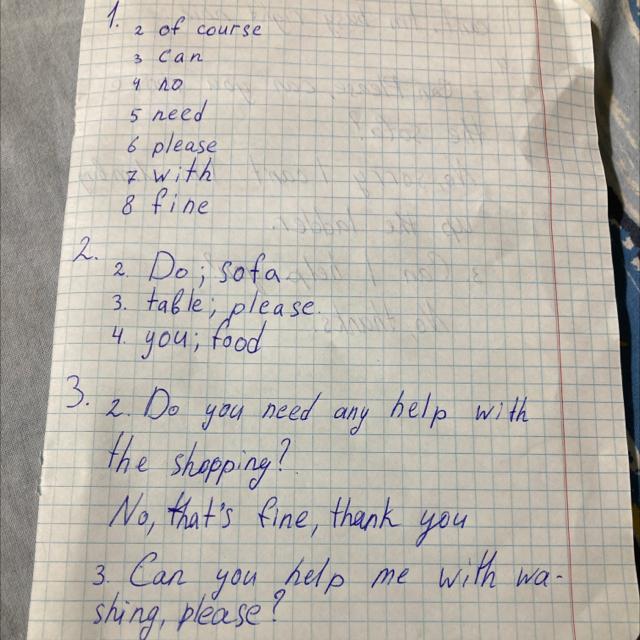 1.
2 of course
3 can
4 no
5 need
6 please
7 with
8 fine
2.
2. Do; sofa
3. table; please.
4. you; food
3. 2. Do you need any help with
the shopping?
No, that's fine, thank you
3. Can you help me with wa-
shing, please?